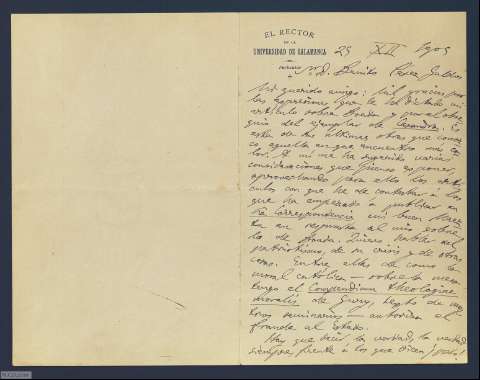 EL RECTOR
DE LA
UNIVERSIDAD DE SALAMANCA
29 XII 1905
PARTICULAR
Sr. D. Benito Pérez Galdós
Mi querido amigo: Mil gracias por
las expresiones que le ha dictado mi
artículo sobre y por el obse-
quio del ejemplar de Casandra. Es
esta de sus últimas obras que conoz-
co aquella en que encuentro más ca-
lor. A mí me ha sugerido varias
consideraciones que pienso exponer,
aprovechando para ello los artí-
culos con que he de contestar a los
que ha empezado a publicar en
La Correspondencia mi buen Maez-
tu en respuesta al mío sobre
lo de . Quiero hablar del
patriotismo, de su crisis y de otras
cosas. Entre ellas de como la
moral católica — sobre la mesa
tengo el Compendium theologiae
moralis de Gury, texto de nues-
tros seminarios — autoriza el
fraude al Estado.
Hay que decir la verdad, la verdad
siempre, frente a los que dicen: ¡paz!